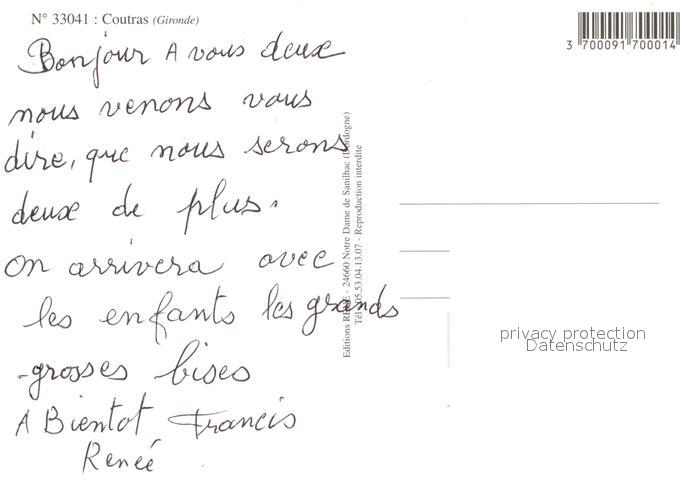 N° 33041 : Coutras (Gironde)
3 700091 700014
Bonjour A vous deux
nous venons vous
dire, que nous serons
deux de plus.
on arrivera avec
les enfants les grands
-grosses bises
A Bientot Francis
Reneé
Editions - 24660 Notre Dame de Sanilhac (Dordogne)
Tél. 05.53.04.13.07 - Reproduction interdite
privacy protection
Datenschutz